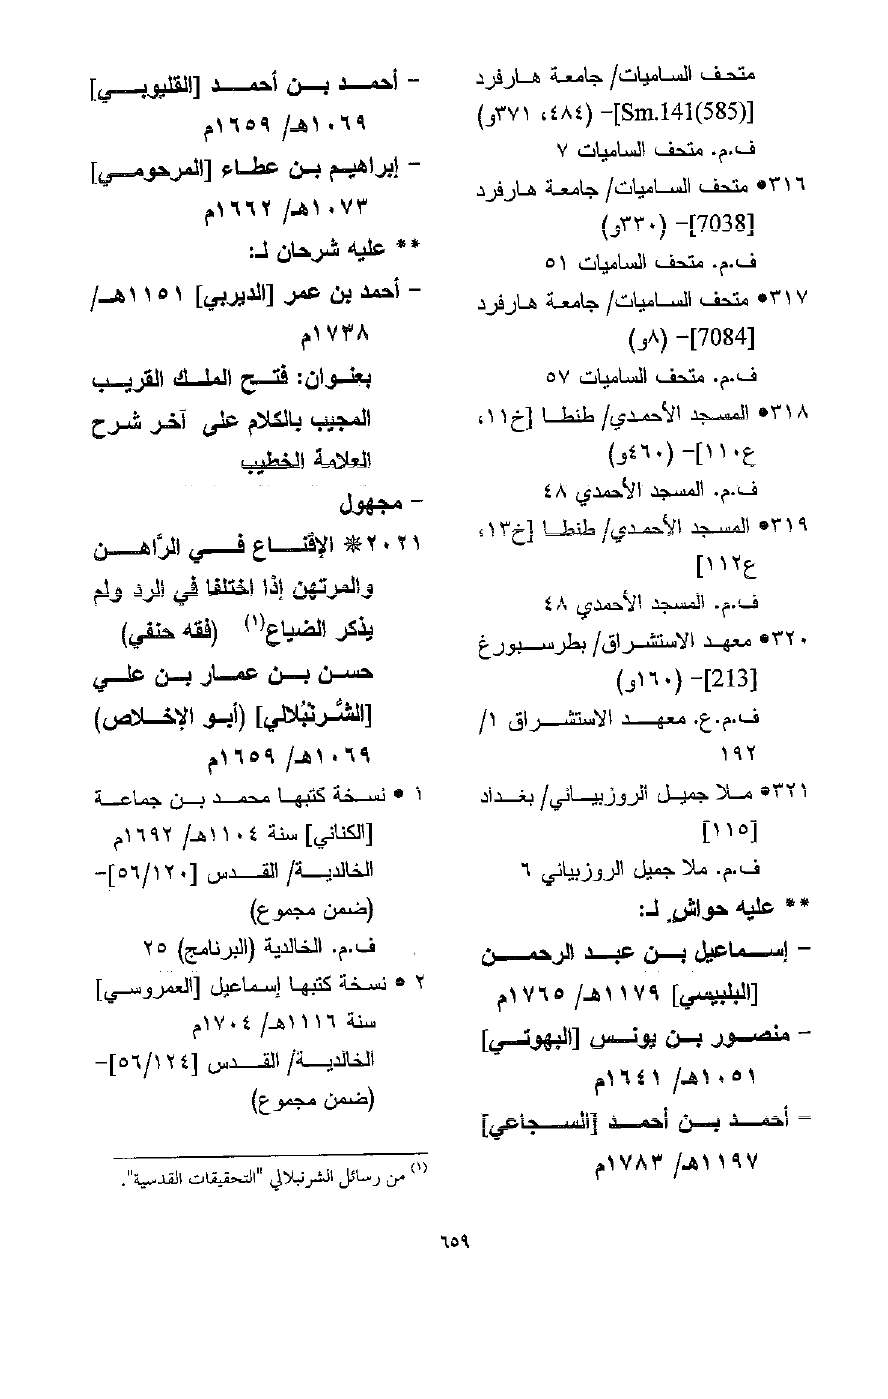 متحف الساميات/ جامعة هارفرد
[Sm.141(585)]- (٤٨٤، ٣٧١و)
ف.م. متحف الساميات ٧
٣١٦• متحف الساميات/ جامعة هارفرد
[7038]- (٣٣٠و)
ف.م. متحف الساميات ٥١
٣١٧• متحف الساميات/ جامعة هارفرد
[7084]- (٨و)
ف.م. متحف الساميات ٥٧
٣١٨• المسجد الأحمدي/ طنطا [خ١١،
ع١١٠]- (٤٦٠و)
ف.م. المسجد الأحمدي ٤٨
٣١٩• المسجد الأحمدي/ طنطا [خ١٣،
ع١١٢]
ف.م. المسجد الأحمدي ٤٨
٣٢٠• معهد الاستشراق/ بطرسبورغ
[213]- (١٦٠و)
ف.م.ع. معهد الاستشراق ١/
١٩٢
٣٢١• ملا جميل الروزبياني/ بغداد
[١١٥]
ف.م. ملا جميل الروزبياني ٦
** عليه حواشٍ لـ:
- إسماعيل بن عبد الرحمن
[البلبيسي] ١١٧٩هـ/ ١٧٦٥م
- منصور بن يونس [البهوتي]
١٠٥١هـ/ ١٦٤١م
- أحمد بن أحمد [السجاعي]
١١٩٧هـ/ ١٧٨٣م
- أحمد بن أحمد [القليوبي]
١٠٦٩هـ/ ١٦٥٩م
- إبراهيم بن عطاء [المرحومي]
١٠٧٣هـ/ ١٦٦٢م
** عليه شرحان لـ:
- أحمد بن عمر [الديربي] ١١٥١هـ/
١٧٣٨م
بعنوان: فتح الملك القريب
المجيب بالكلام على آخر شرح
العلامة الخطيب
- مجهول
٢٠٢١* الإقناع في الرَّاهن
والمرتهن إذا اختلفا في الرد ولم
يذكر الضياع(١) (فقه حنفي)
حسن بن عمار بن علي
[الشُّرنْبُلالي] (أبو الإخلاص)
١٠٦٩هـ/ ١٦٥٩م
١ • نسخة كتبها محمد بن جماعة
[الكناني] سنة ١١٠٤هـ/ ١٦٩٢م
الخالدية/ القدس [٥٦/١٢٠]-
(ضمن مجموع)
ف.م. الخالدية (البرنامج) ٢٥
٢ • نسخة كتبها إسماعيل [العمروسي]
سنة ١١١٦هـ/ ١٧٠٤م
الخالدية/ القدس [٥٦/١٢٤]-
(ضمن مجموع)
(١) من رسائل الشرنبلالي "التحقيقات القدسية".
٦٥٩